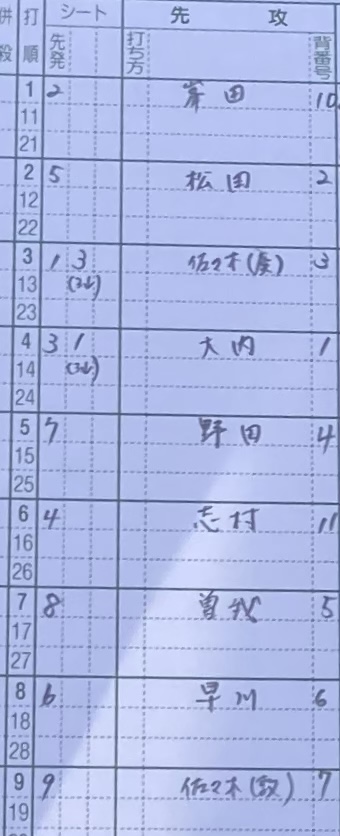 併殺 打順 シート 先攻
先発 打ち方 背番号
1 2 岸田 10
11
21
2 5 松田 2
12
22
3 1 3 佐々木(座) 3
13 (3ウ)
23
4 3 1 大内 1
14 (3ウ)
24
5 7 野田 4
15
25
6 4 志村 11
16
26
7 8 曽我 5
17
27
8 6 早川 6
18
28
9 9 佐々木(敦) 7
19